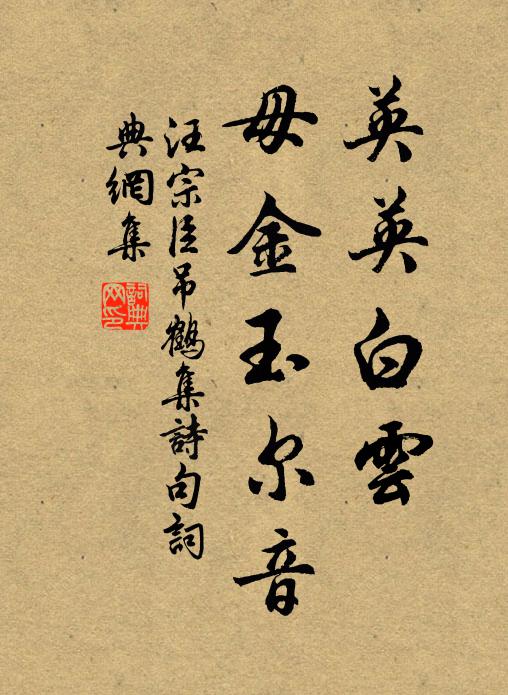 英英白雲
毋金玉尔音
汪宗臣吊鶴集詩句詞
典網集
詞典
网印